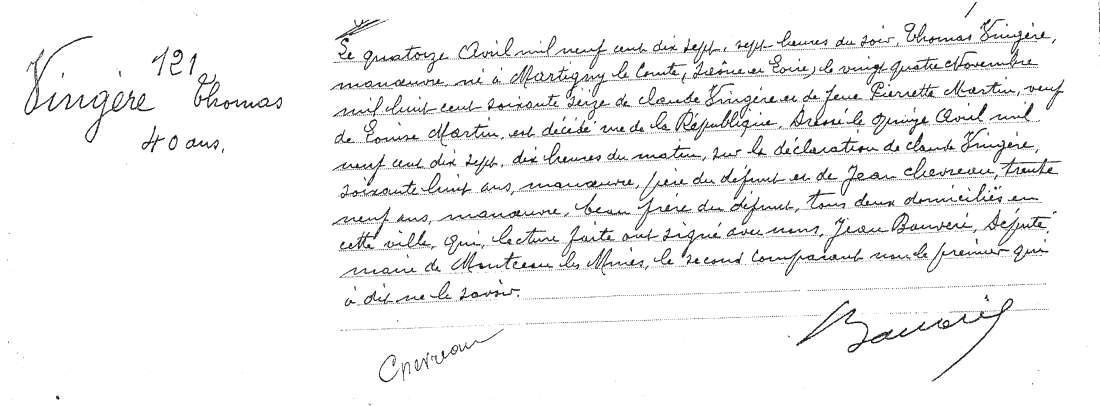 121
Vingère Thomas
40 ans.
Le quatorze Avril mil neuf cent dix sept, sept heures du soir, Thomas Vingère,
manœuvre né à Martigny le Comte, (Saône et Loire), le vingt quatre Novembre
mil huit cent soixante seize de Claude Vingère et de feue Pierrette Martin, veuf
de Louise Martin, est décédé rue de la République. Dressé le quinze Avril mil
neuf cent dix sept, dix heures du matin, sur la déclaration de Claude Vingère,
soixante huit ans, manœuvre, père du défunt et de Jean Chevreau, trente
neuf ans, manœuvre, beau frère du défunt, tous deux domiciliés en
cette ville, qui, lecture faite ont signé avec nous, Jean Bouveri, Député
maire de Montceau les Mines, le second comparant non le premier qui
a dit ne le savoir.
Chevreau
Bouveri